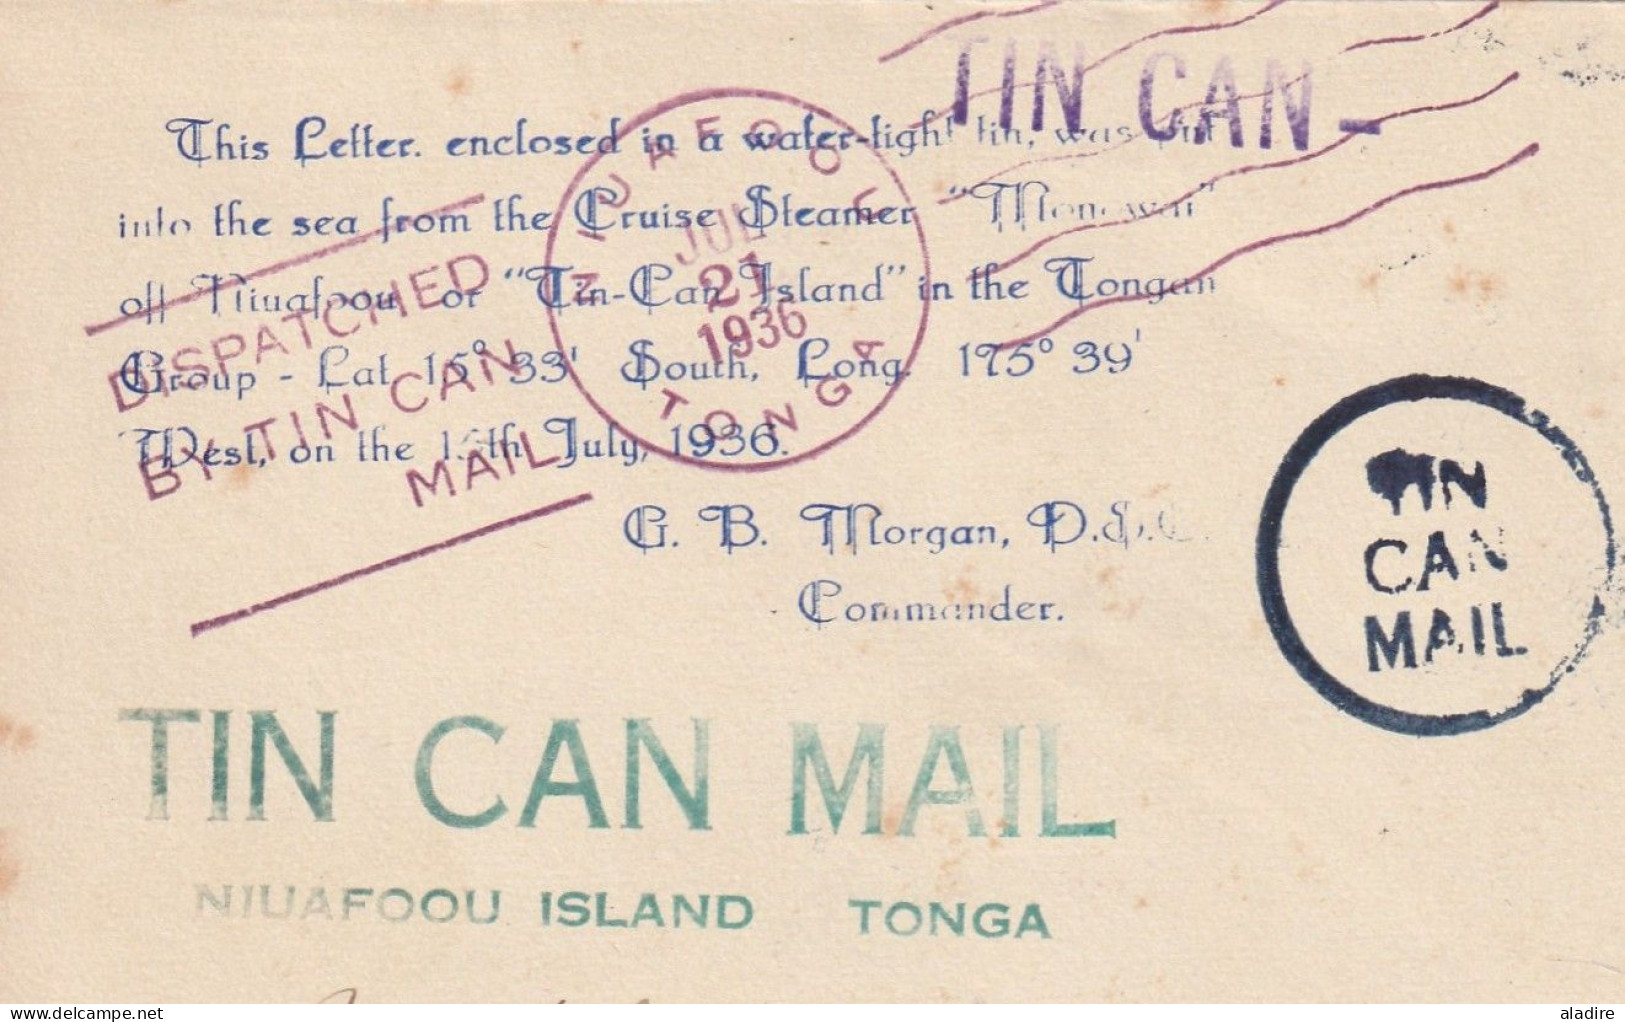 TIN CAN -
This Letter. enclosed in a water-tight tin, was put
into the sea from the Cruise Steamer "Monowai"
off Niuafoou or "Tin-Can Island" in the Tongan
Group - Lat 15° 33' South, Long. 175° 39'
West, on the July, 1936.
G. B. Morgan, D.S.C.
Commander.
NIUAFOOU
JUL
21
1936
TONGA
DISPATCHED
BY TIN CAN
MAIL
TIN
CAN
MAIL
TIN CAN MAIL
NIUAFOOU ISLAND TONGA
delcampe.net
aladire